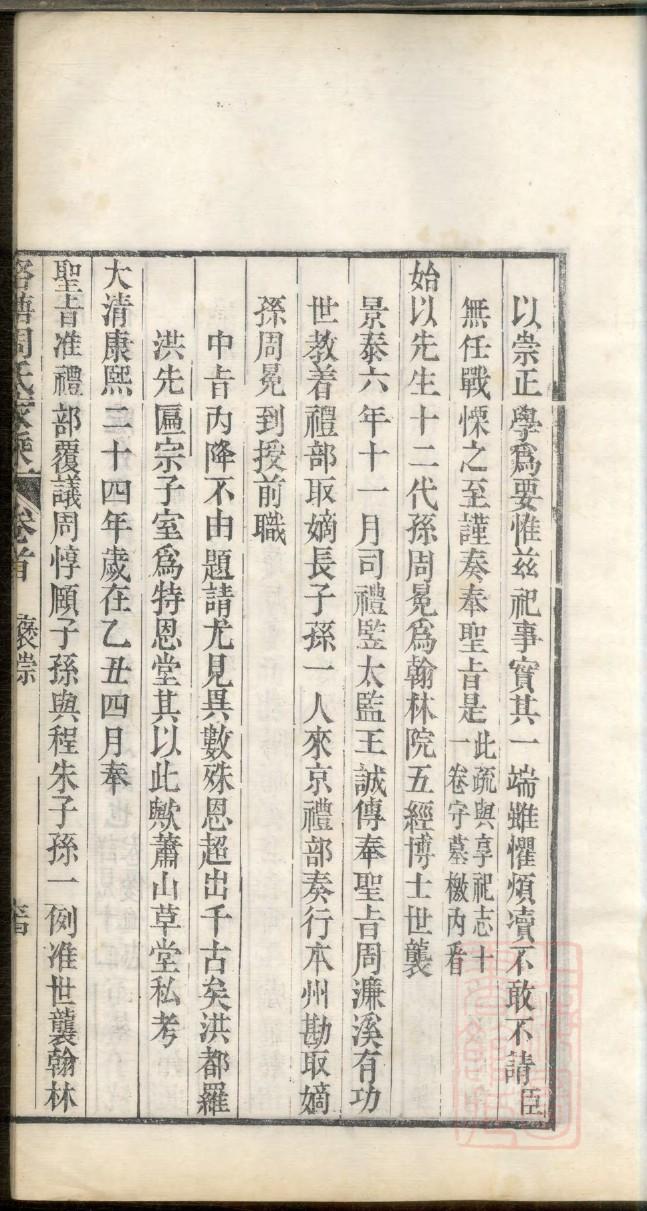 以崇正學爲要惟兹祀事實其一端雖懼煩凟不敢不請臣
無任戰慄之至謹奏奉聖旨是此疏與享祀志十
一卷守墓檄內看
始以先生十二代孫周冕爲翰林院五經博士世襲
景泰六年十一月司禮監太監王誠傳奉聖旨周濂溪有功
世教着禮部取嫡長子孫一人來京禮部奏行本州勘取嫡
孫周冕到授前職
中旨內降不由題請尤見異數殊恩超出千古矣洪都羅
洪先匾宗子室爲特恩堂其以此歟蕭山草堂私考
大清康熙二十四年歲在乙丑四月奉
聖旨准禮部覆議周惇頤子孫與程朱子孫一例准世襲翰林
周氏家乘 卷首 褒崇